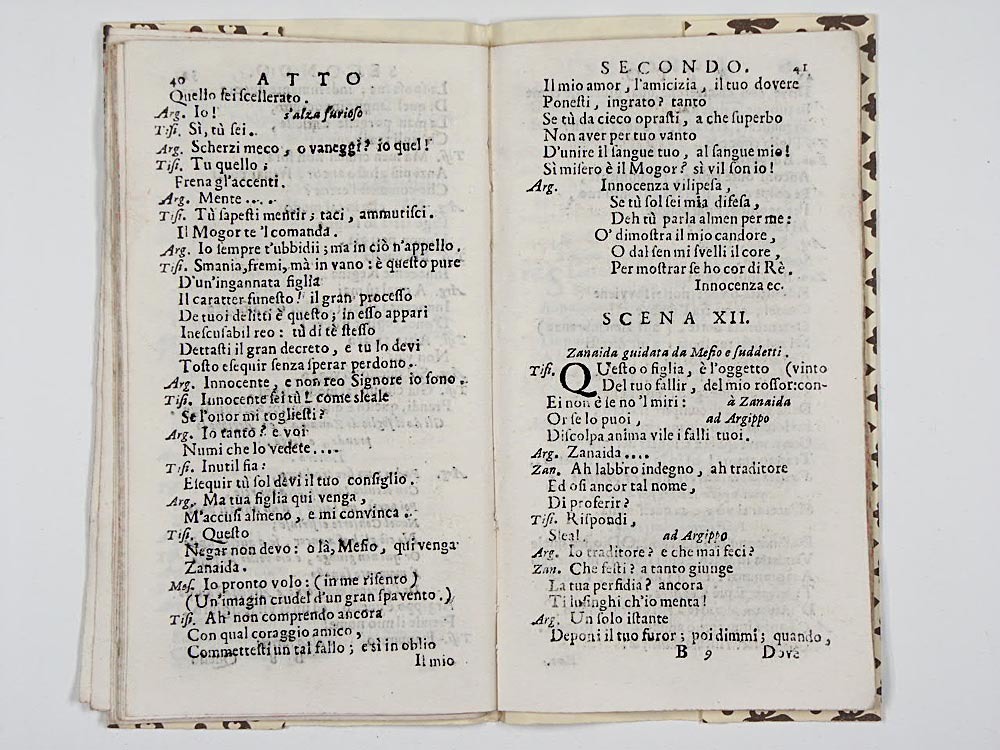 40 ATTO
Quello sei scellerato.
Arg. Io! s'alza furioso
Tisi. Sì, tù sei..
Arg. Scherzi meco, o vaneggi? io quel!
Tisi. Tu quello;
Frena gl'accenti.
Arg. Mente....
Tisi. Tù sapesti mentir; taci, ammutisci.
Il Mogor te 'l comanda.
Arg. Io sempre t'ubbidii; ma in ciò n'appello.
Tisi. Smania, fremi, mà in vano: è questo pure
D'un'ingannata figlia
Il caratter funesto! il gran processo
De tuoi delitti è questo; in esso appari
Inescusabil reo: tù di tè stesso
Dettasti il gran decreto, e tu lo devi
Tosto esequir senza sperar perdono..
Arg. Innocente, e non reo Signore io sono.
Tisi. Innocente sei tù! come sleale
Se l'onor mi togliesti?
Arg. Io tanto? e voi
Numi che lo vedete....
Tisi. Inutil fia:
Esequir tù sol devi il tuo consiglio.
Arg. Ma tua figlia qui venga,
M'accusi almeno, e mi convinca..
Tisi. Questo
Negar non devo: o là, Mesio, qui venga
Zanaida.
Mes. Io pronto volo: (in me risento)
(Un'imagin crudel d'un gran spavento.)
Tisi. Ah' non comprendo ancora
Con qual coraggio amico,
Commettesti un tal fallo; e sì in oblio
Il mio
SECONDO. 41
Il mio amor, l'amicizia, il tuo dovere
Ponesti, ingrato? tanto
Se tù da cieco oprasti, a che superbo
Non aver per tuo vanto
D'unire il sangue tuo, al sangue mio!
Sì misero è il Mogor? sì vil son io!
Arg. Innocenza vilipesa,
Se tù sol sei mia difesa,
Deh tù parla almen per me:
O' dimostra il mio candore,
O dal sen mi svelli il core,
Per mostrar se ho cor di Rè.
Innocenza ec.
SCENA XII.
Zanaida guidata da Mesio e suddetti.
Tisi. QUesto o figlia, è l'oggetto (vinto
Del tuo fallir, del mio rossor: con-
Ei non è se no 'l miri: à Zanaida
Or se lo puoi, ad Argippo
Discolpa anima vile i falli tuoi.
Arg. Zanaida....
Zan. Ah labbro indegno, ah traditore
Ed osi ancor tal nome,
Di proferir?
Tisi. Rispondi,
Sleal. ad Argippo
Arg. Io traditore? e che mai feci?
Zan. Che festi? a tanto giunge
La tua perfidia? ancora
Ti lusinghi ch'io menta!
Arg. Un solo istante
Deponi il tuo furor; poi dimmi; quando,
B 9 Dove